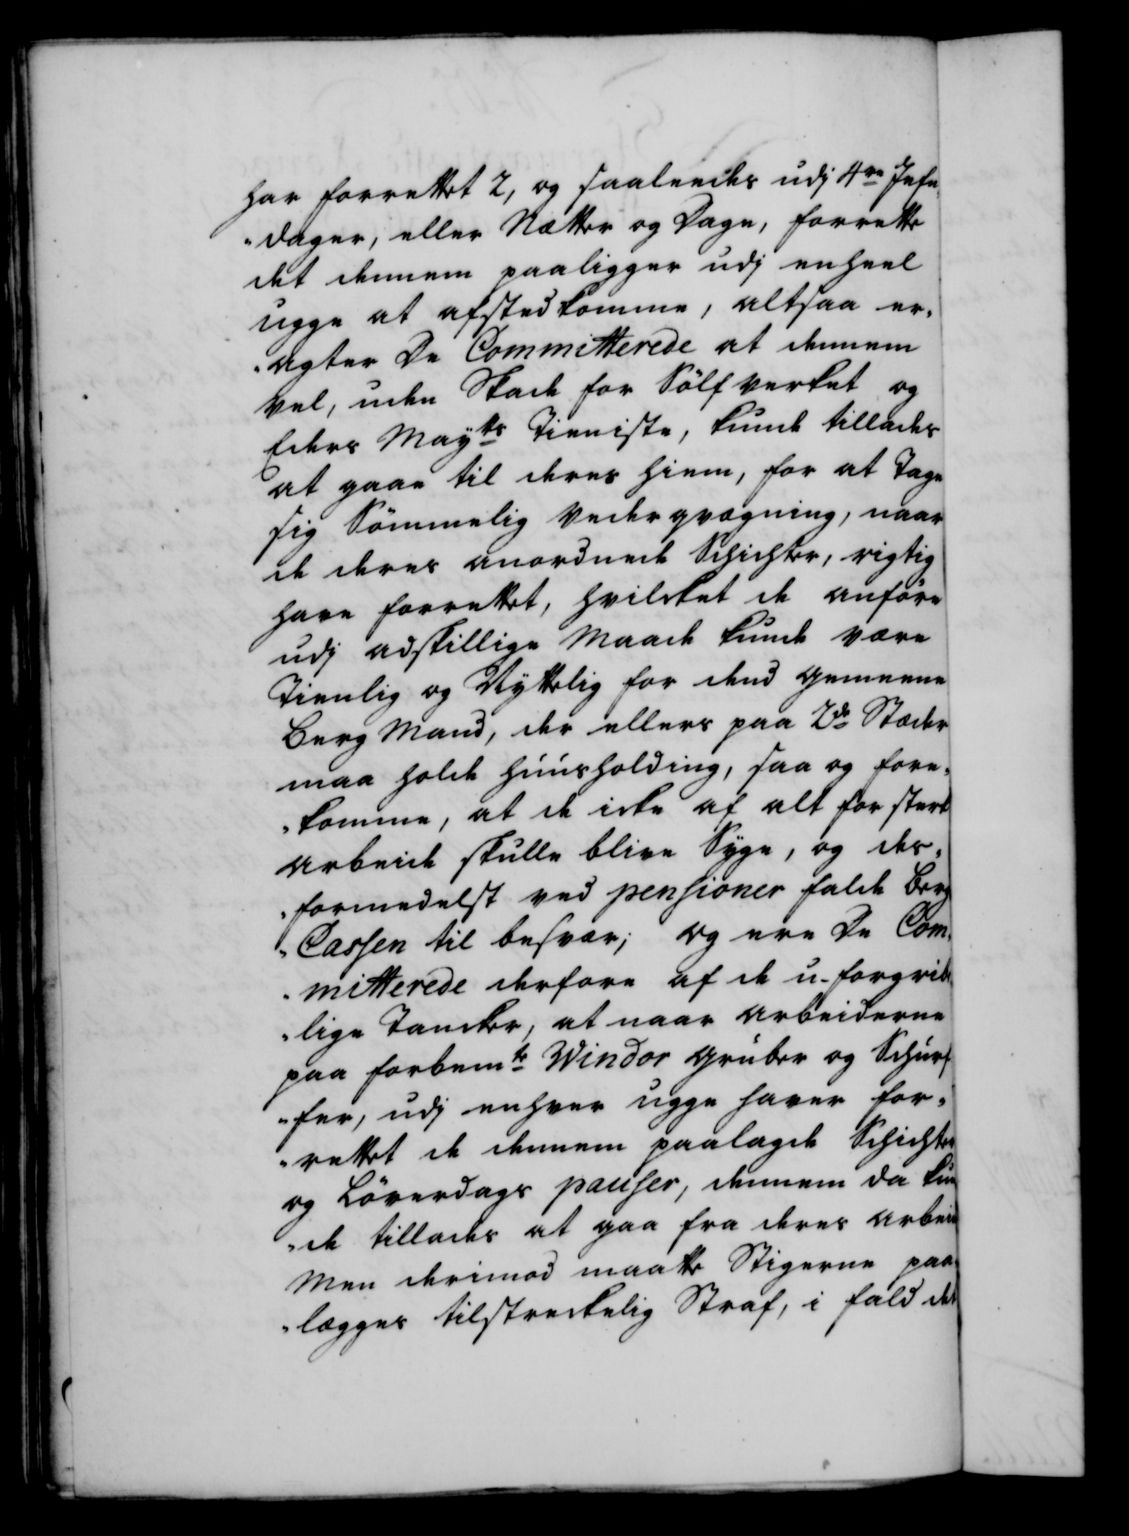 har forrettet 2, og saaleedes udj 4re Jefn¬
"dager, eller Nætter og Dage, forrette
det dennem paaligger udj enheel
ugge at afstedkomme, altsaa er¬
"agter De Committerede at dennem
vel, uden Skade for Sölfverket og
Eders Maytts Tieniste, kunde tillades
at gaae til deres hiem, for at Tage
sig Sömmelig Vederqvægning, naar
de deres anordnede Schichter, rigtig
have forrettet, hvilcket de anföre
udj adskillige Maade kunde være
Tienlig og Nyttelig for dend gemeene
Berg Mand, der ellers paa 2de Stæder
maa holde húúsholding, saa og fore¬
"komme, at de icke af alt for sterk
arbeide skulle blive Syge, og der¬
"formedelst ved pensioner falde Berg
"Cassen til besvær; og ere De Com¬
"mitterede derfore af de u-forgrib¬
"lige Tancker, at naar Arbeiderne
paa forbemte Windor grúber og Schúrf
"fer, udj enhver ugge haver for¬
"rettet de dennem paalagde Schichter
og Löverdags pauser, dennem da kun
"de tillades at gaa fra deres Arbeid
Men derimod maatte Stigerne paa¬
"lægges tilstreckelig Straf, i fald det